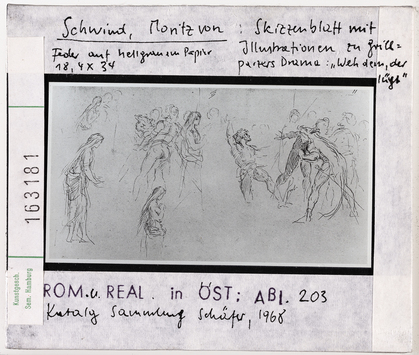 Schwind, Moritz von : Skizzenblatt mit
Feder auf hellgrauem Papier Illustrationen zu Grill=
18,4 x 34 parzers Drama: „Weh dem, der
lügt"
163181
Kunstgesch.
Sem. Hamburg
ROM. u. REAL. in ÖST; ABI. 203
Katalg Sammlung Schäfer, 1968